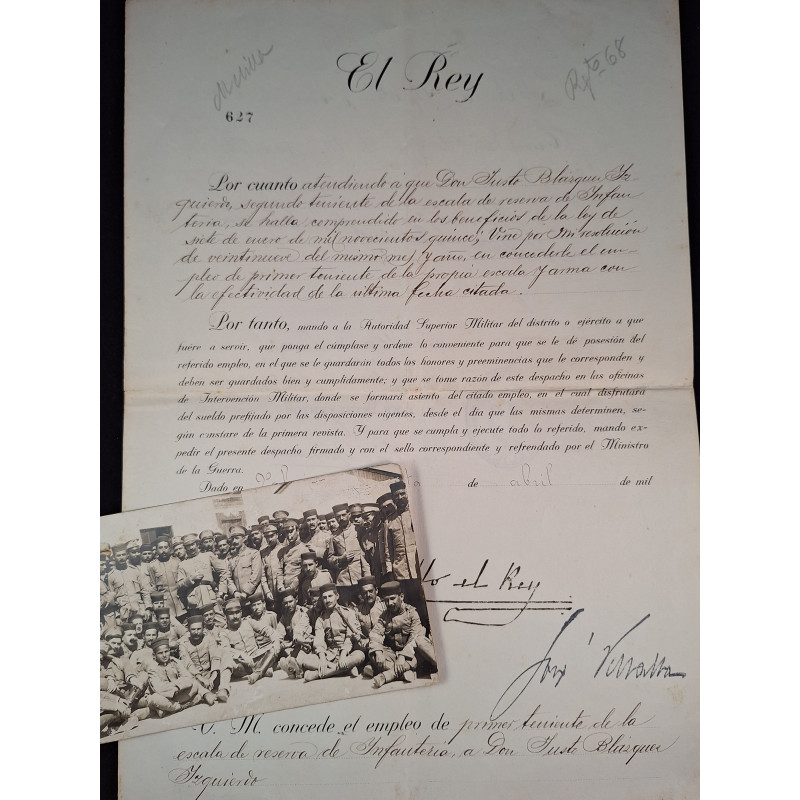 El Rey
Melilla
Rgto. 68
627
Por cuanto atendiendo á que Don Justo Blásquer Iz-
quierdo, segundo teniente de la escala de reserva de Infan-
tería, se halla comprendido en los beneficios de la ley de
siete de enero de mil novecientos quince; Vine por Mi resolución
de veintinueve del mismo mes y año, en concederle el em-
pleo de primer teniente de la propia escala y arma con
la efectividad de la última fecha citada.
Por tanto, mando a la Autoridad Superior Militar del distrito o ejército a que
fuere a servir, que ponga el cúmplase y ordene lo conveniente para que se le dé posesión del
referido empleo, en el que se le guardarán todos los honores y preeminencias que le corresponden y
deben ser guardados bien y cumplidamente; y que se tome razón de este despacho en las oficinas
de Intervención Militar, donde se formará asiento del citado empleo, en el cual disfrutará
del sueldo prefijado por las disposiciones vigentes, desde el día que las mismas determinen, se-
gún constare de la primera revista. Y para que se cumpla y ejecute todo lo referido, mando ex-
pedir el presente despacho firmado y con el sello correspondiente y refrendado por el Ministro
de la Guerra.
Dado en de abril de mil
el Rey
José Villalba
S. M. concede el empleo de primer teniente de la
escala de reserva de Infantería, a Don Justo Blásquer
Izquierdo